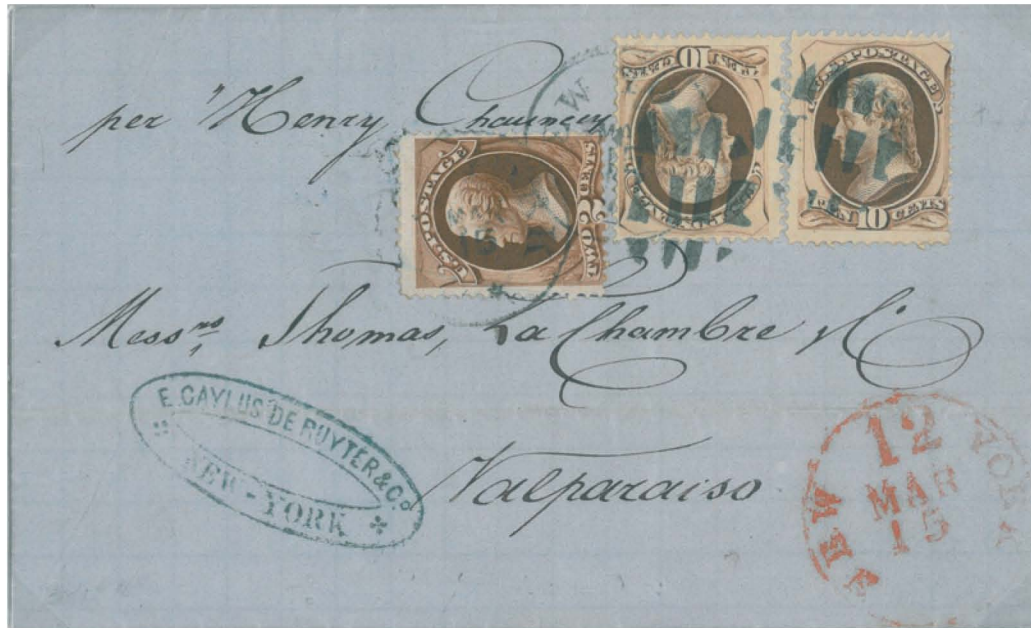 per "Henry Chauncey
U.S. POSTAGE
TWO CENTS
U.S. POSTAGE
TEN 10 CENTS
U.S. POSTAGE
TEN 10 CENTS
Messrs, Thomas, La Chambre y Co
Valparaiso
E. CAYLUS DE RUYTER & Co
NEW-YORK
NEW YORK
12
MAR
15